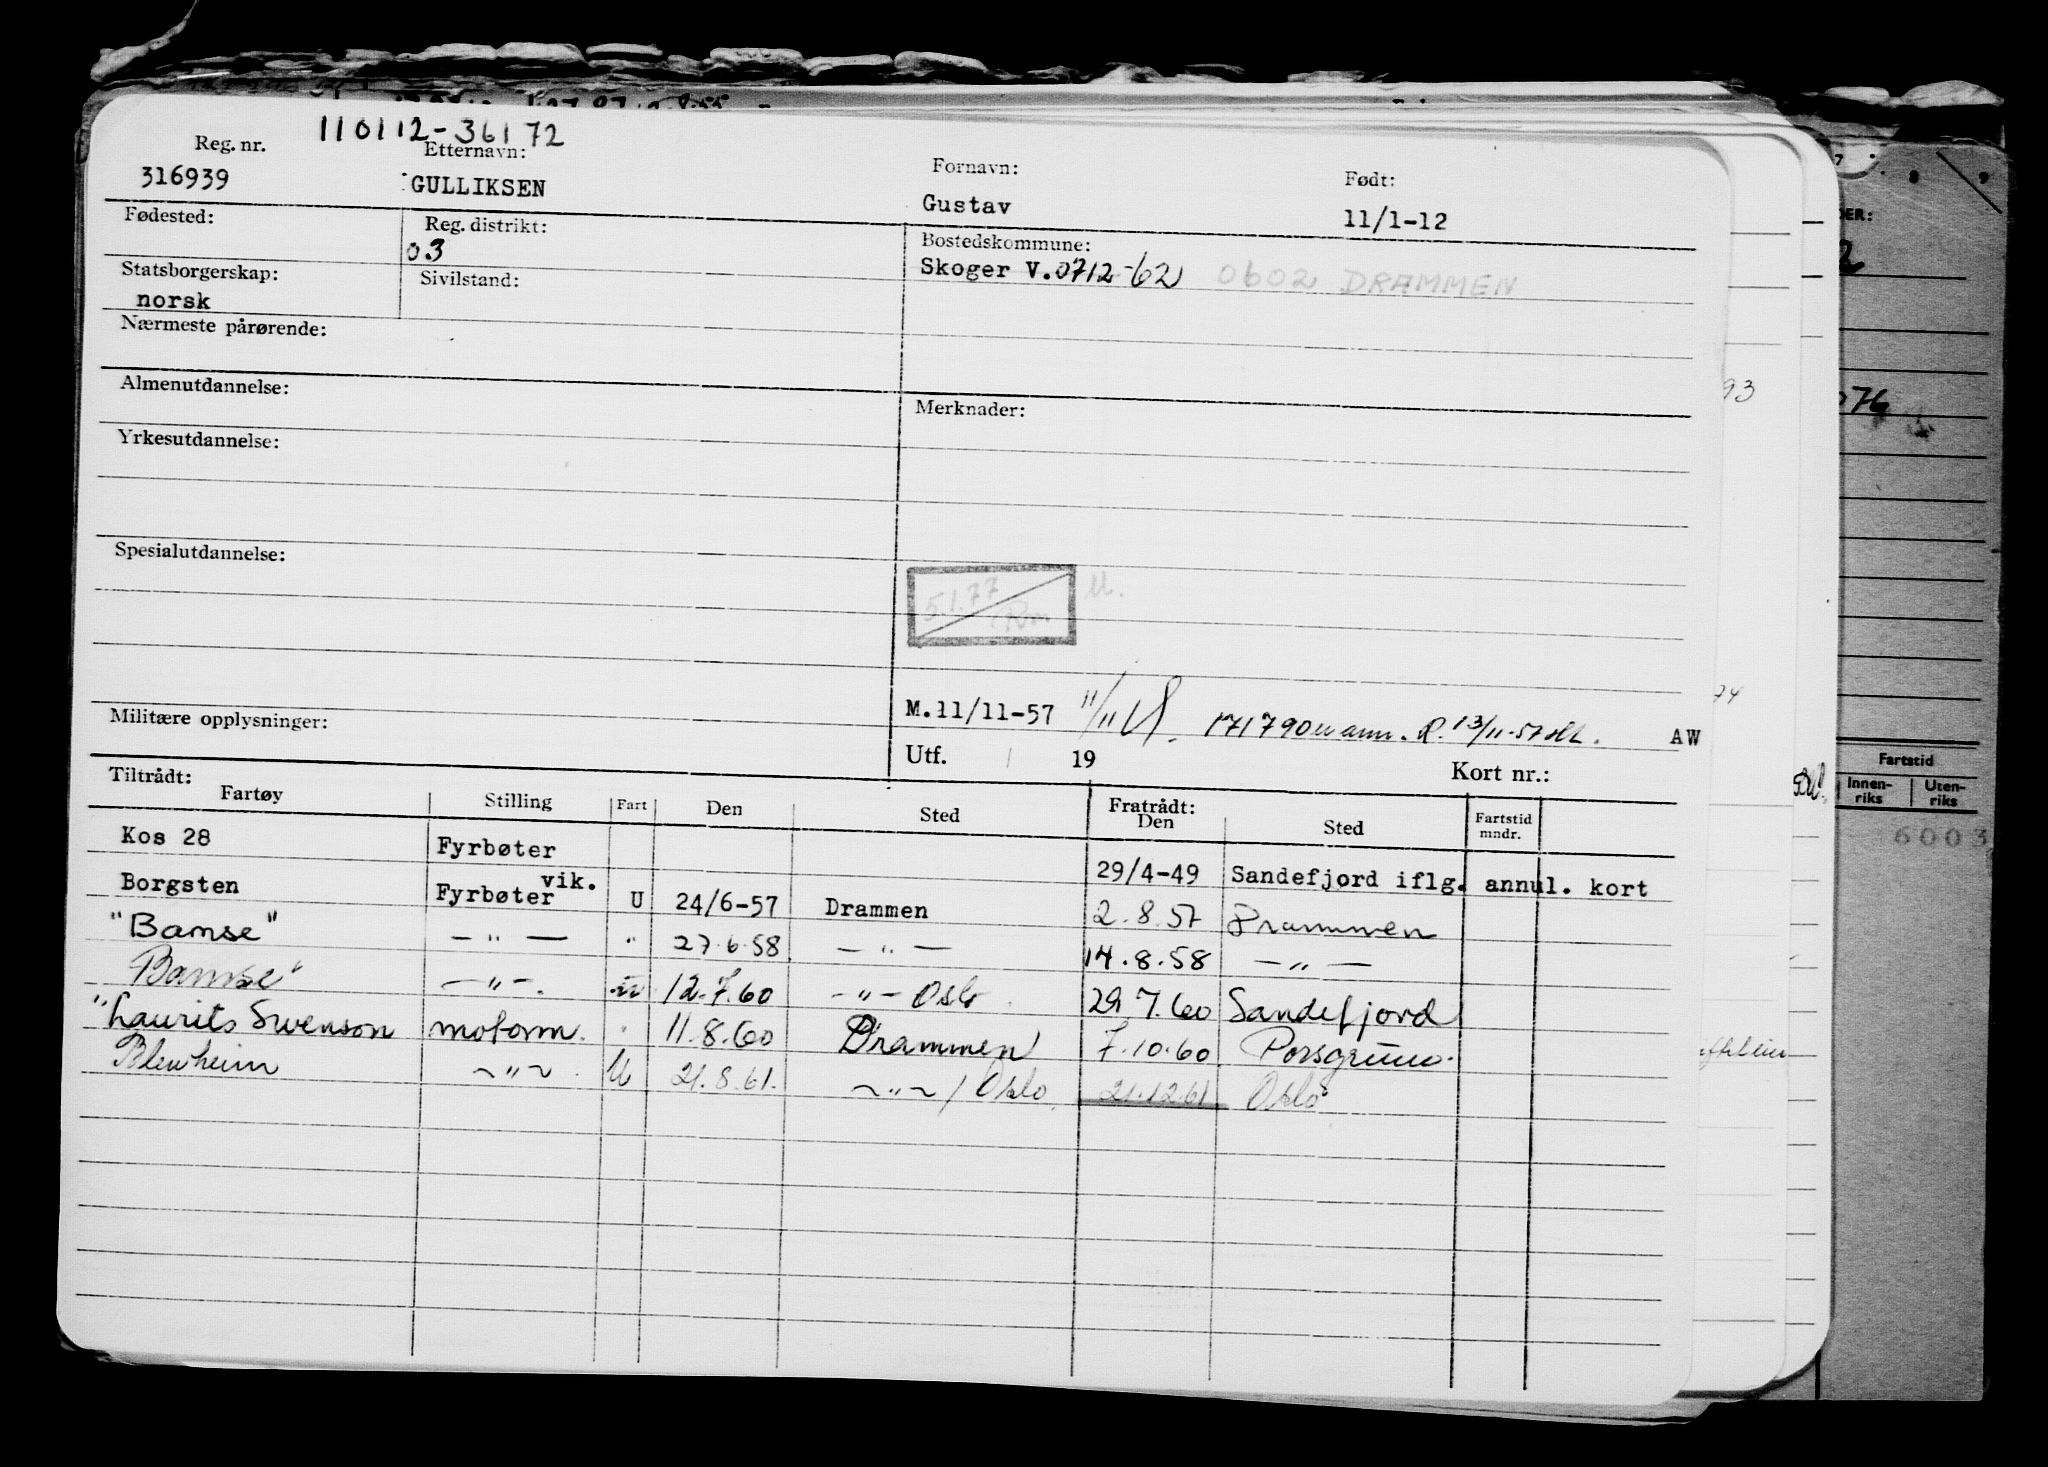 110112-36172
Reg. nr. Etternavn: Fornavn: Født:
316939 GULLIKSEN Gustav 11/1-12
Fødested: Reg. distrikt: Bostedskommune:
03 Skoger V.0712-62 0602 DRAMMEN
Statsborgerskap: Sivilstand:
norsk
Nærmeste pårørende:
Almenutdannelse: Merknader:
Yrkesutdannelse:
Spesialutdannelse:
5.1.77
M.11/11-57 11/11 171790 mann. R. 13/11-57 AW
Militære opplysninger: Utf. 19 Kort nr.:
Tiltrådt: Fratrådt:
Fartøy Stilling Fart Den Sted Den Sted Fartstid mndr.
Kos 28 Fyrbøter 29/4-49 Sandefjord iflg. annul. kort
Borgsten Fyrbøter vik. U 24/6-57 Drammen 2.8.57 Drammen
"Bamse" — " — " 27.6.58 — " — 14.8.58 — " —
Bamse" — " —. u 12.7.60 — " — Oslo 29.7.60 Sandefjord
"Laurits Swenson motorm. " 11.8.60 Drammen 7.10.60 Porsgrunn.
Blenheim ~ " ~ U 21.8.61. ~ " ~ / Oslo 21.12.61 Oslo
93
76
74
Fartstid
Innen-riks Uten-riks
6003